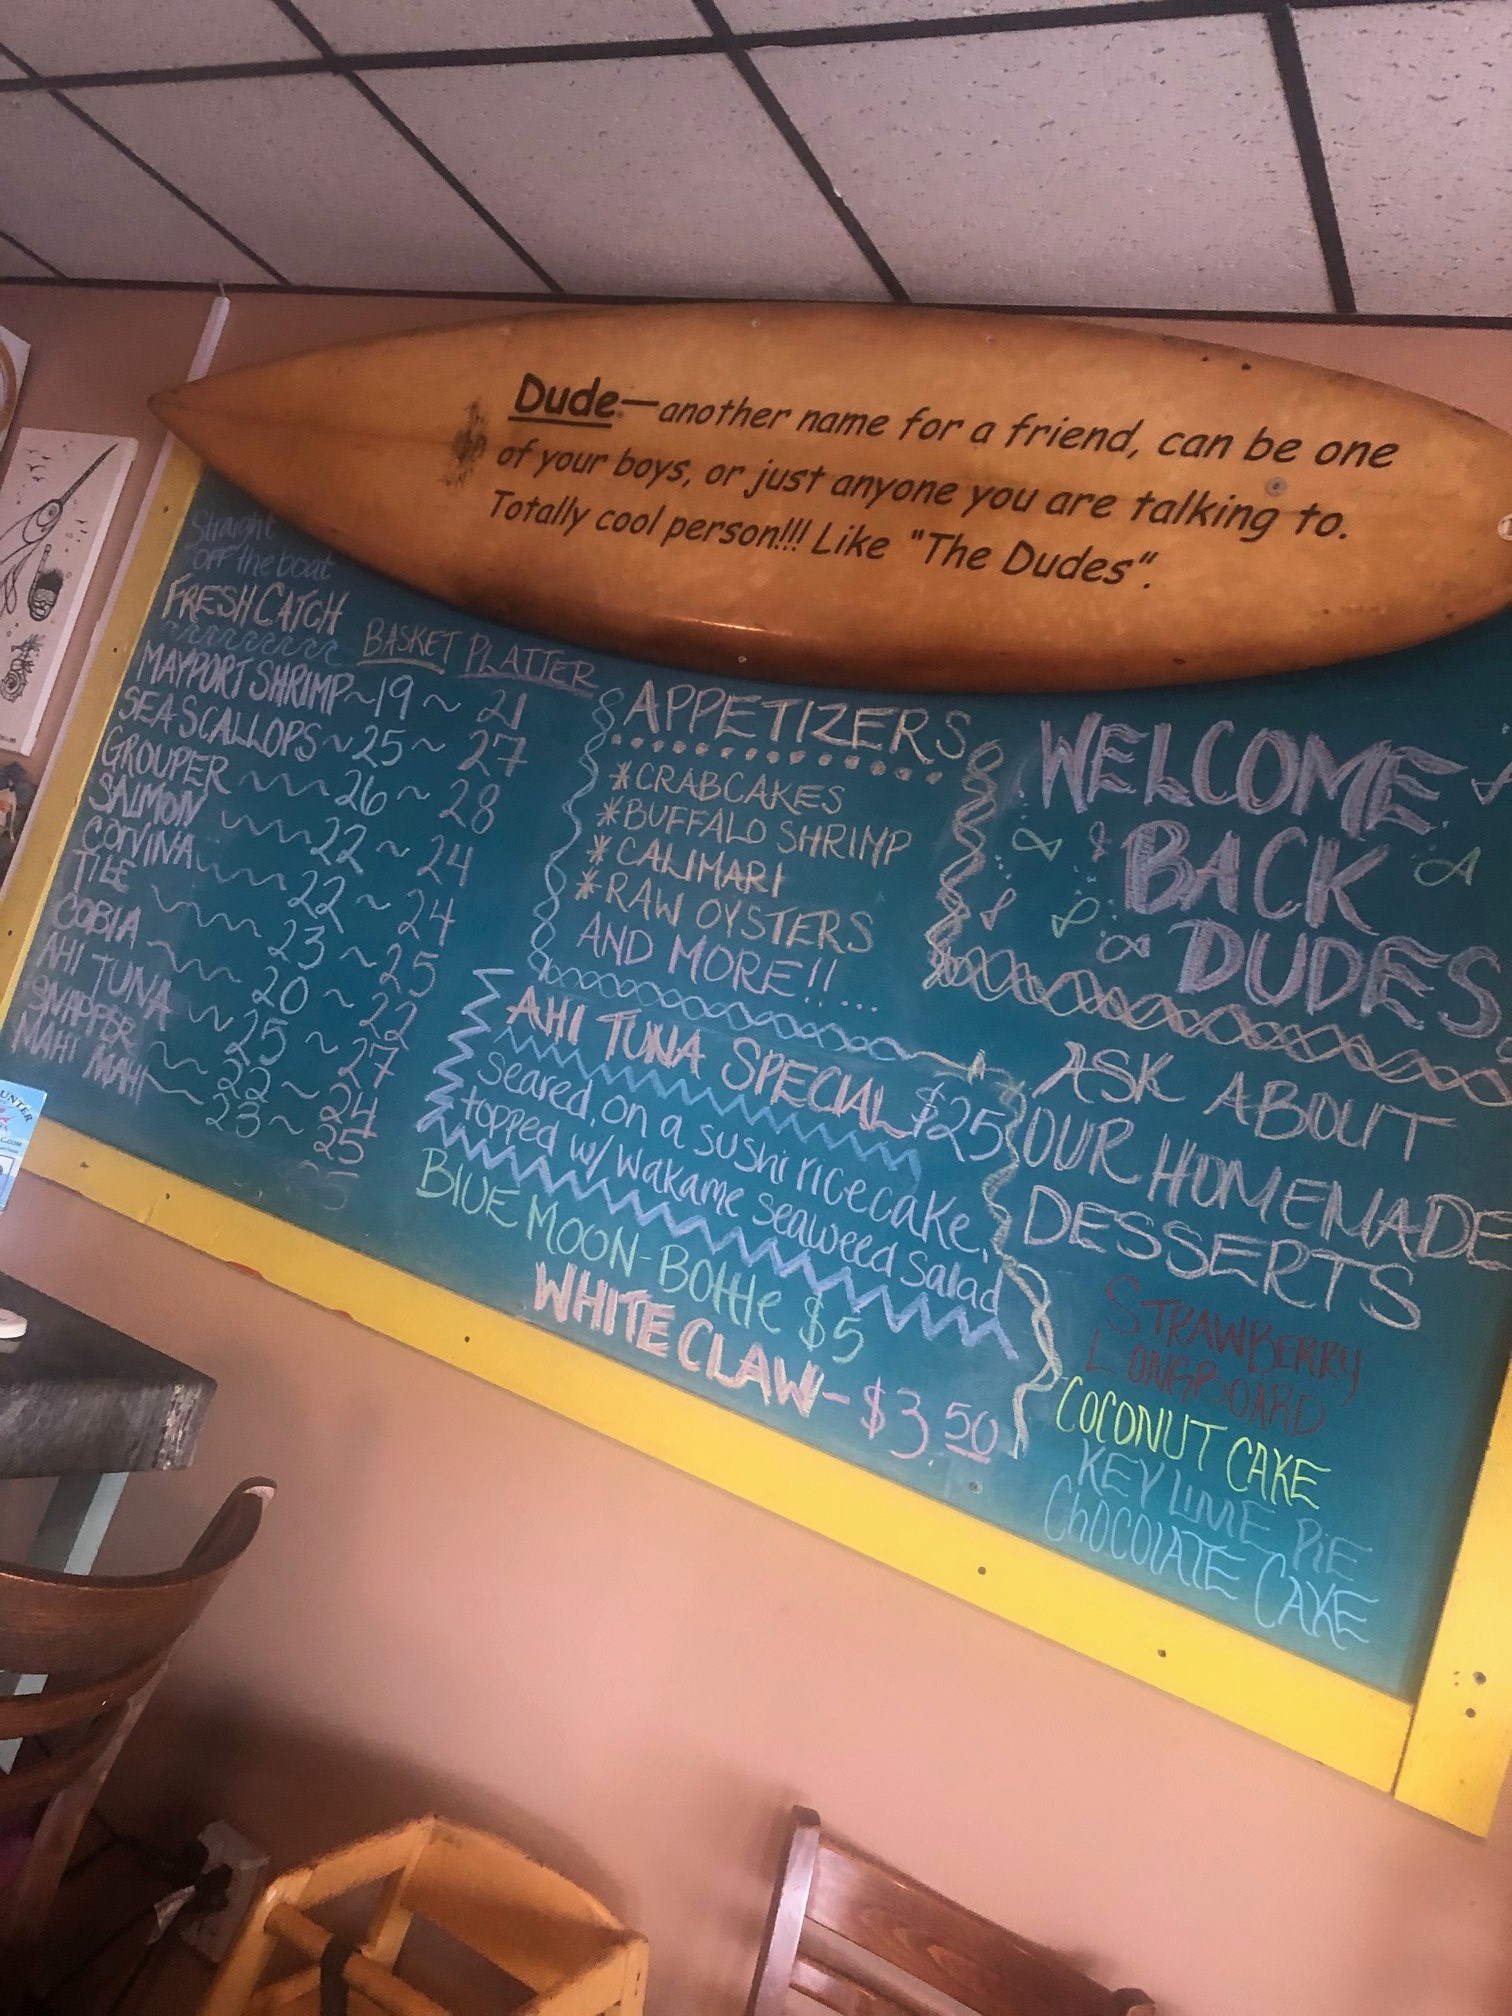 Dude—another name for a friend, can be one
of your boys, or just anyone you are talking to.
Totally cool person!!! Like "The Dudes".
Straight
off the boat
FRESH CATCH BASKET PLATTER
MAYPORT SHRIMP~19 ~ 21
SEA SCALLOPS~25~ 27
GROUPER ~ 26 ~ 28
SALMON ~ 22 ~ 24
CORVINA ~ 22 ~ 24
TILE ~ 23 ~ 25
COBIA ~ 20 ~ 22
AHI TUNA ~ 25 ~ 27
SNAPPER ~ 22 ~ 24
MAHI MAHI ~ 23 ~ 25
APPETIZERS
*CRABCAKES
*BUFFALO SHRIMP
*CALIMARI
*RAW OYSTERS
AND MORE!!...
AHI TUNA SPECIAL $25
Seared, on a sushi rice cake,
topped w/ Wakame Seaweed Salad
BLUE MOON-BOttle $5
WHITE CLAW-$3.50
WELCOME
BACK
DUDES
ASK ABOUT
OUR HOMEMADE
DESSERTS
STRAWBERRY
LONGBOARD
COCONUT CAKE
KEY LIME PiE
ChOCOlATE CAKE